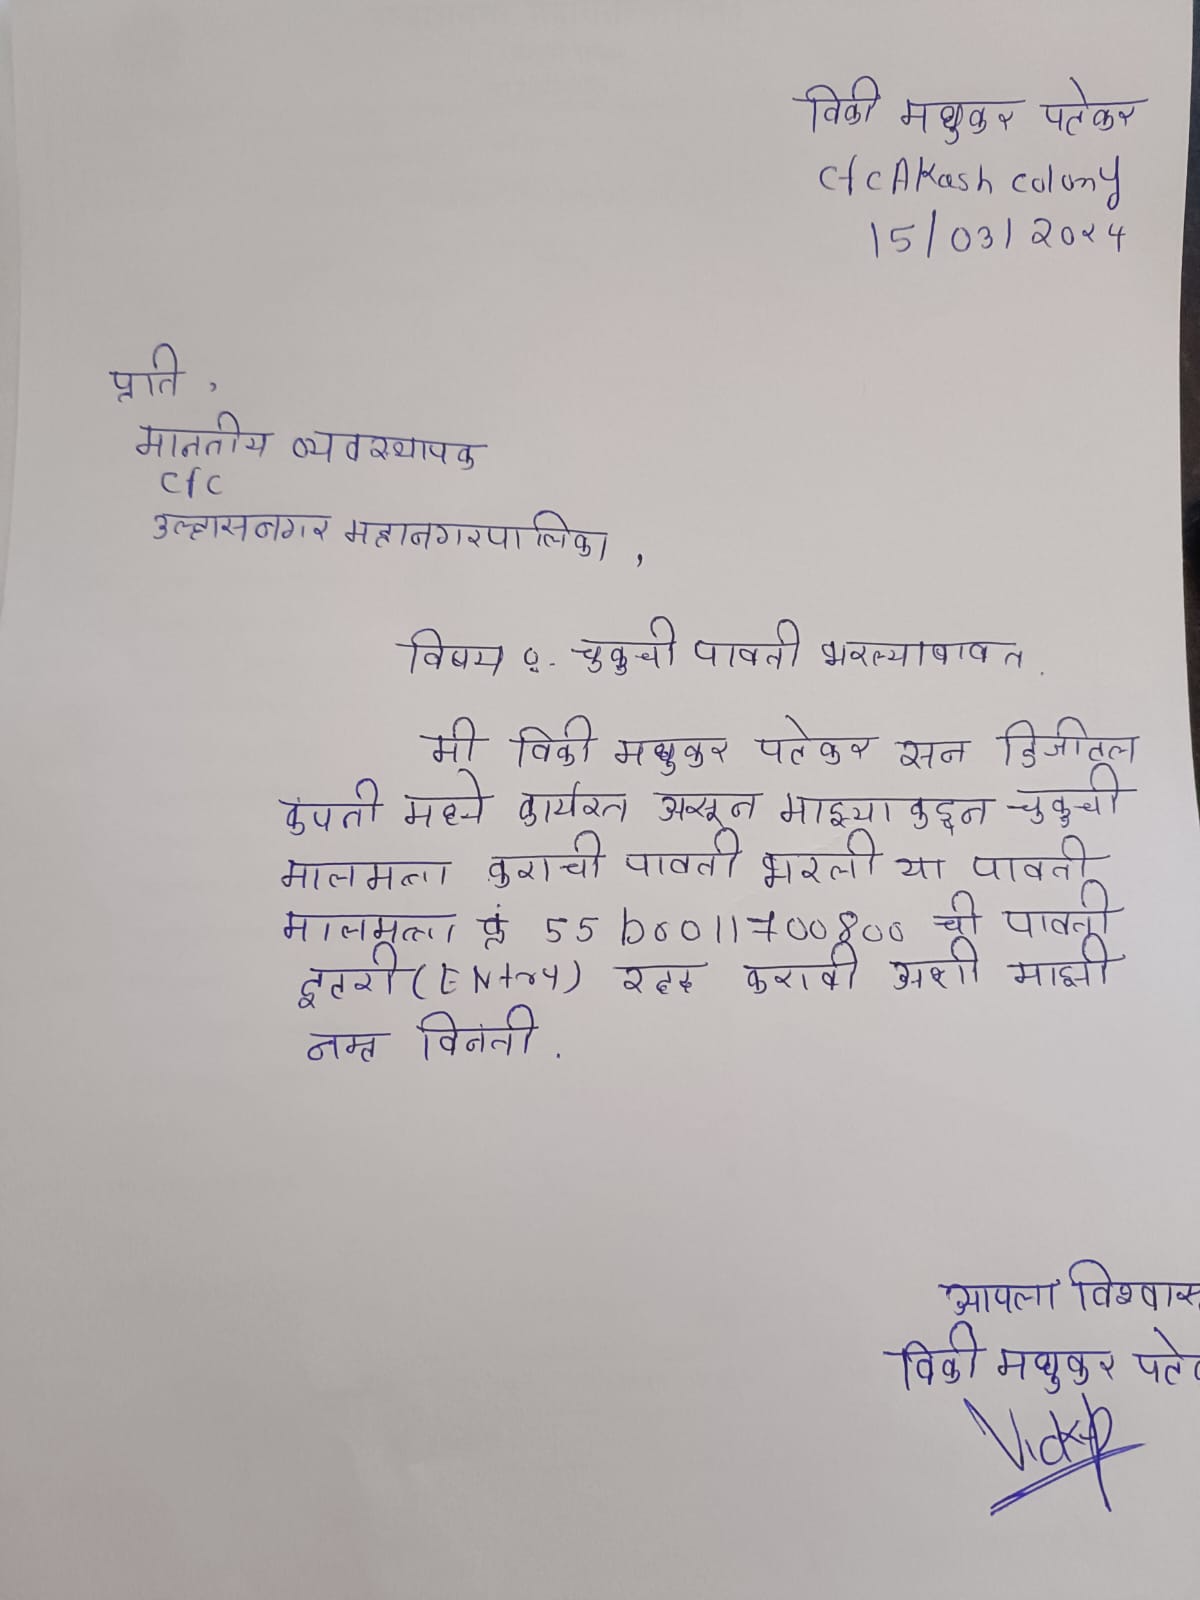 विकी मधुकर पतेकर
cfc Akash colony
15/03/2024
प्रति,
माननीय व्यवस्थापक
cfc
उल्हासनगर महानगरपालिका,
विषय :- चुकुची पावती भरल्याबाबत.
मी विकी मधुकर पतेकर सन डिजीटल
कंपनी मध्ये कार्यरत असून माझ्या कडून चुकुची
मालमत्ता कराची पावती भरली या पावती
मालमत्ता क्रं 55 b0011700800 ची पावती
इंटरी (ENtry) रद्द करावी अशी माझी
नम्र विनंती.
आपला
विकी मधुकर
Vicky